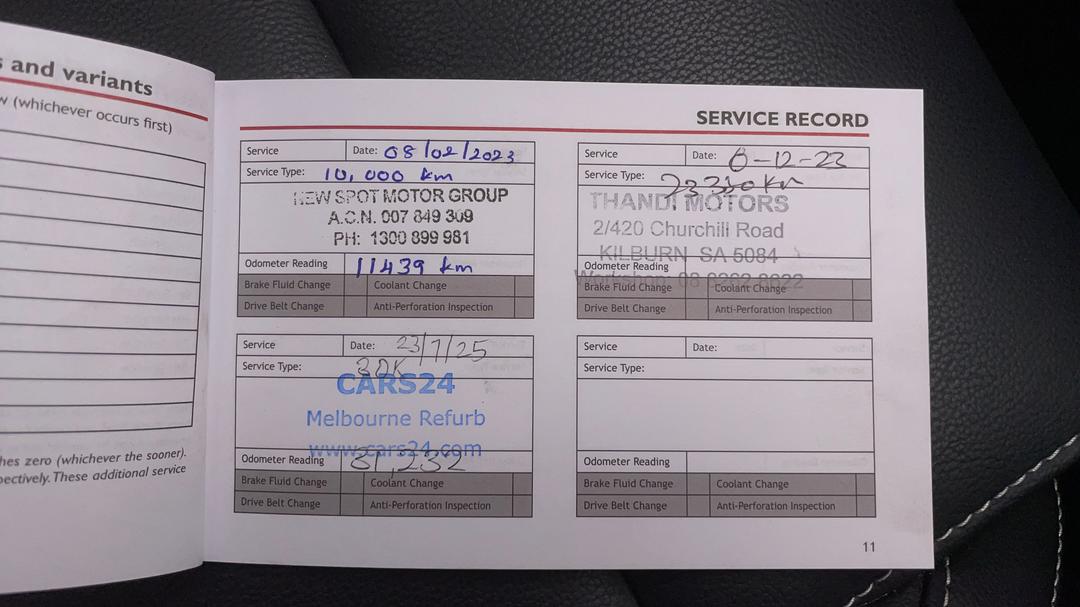 s and variants
w (whichever occurs first)
hes zero (whichever the sooner).
pectively. These additional service
SERVICE RECORD
Service Date: 08/02/2023
Service Type: 10,000 km
NEW SPOT MOTOR GROUP
A.C.N. 007 849 309
PH: 1300 899 981
Odometer Reading 11439 km
Brake Fluid Change Coolant Change
Drive Belt Change Anti-Perforation Inspection
Service Date: 6-12-23
Service Type: 23330 km
THANDI MOTORS
2/420 Churchill Road
KILBURN SA 5084
Odometer Reading
Workshop: 08 8262 8622
Brake Fluid Change Coolant Change
Drive Belt Change Anti-Perforation Inspection
Service Date: 23/7/25
Service Type: 30K
CARS24
Melbourne Refurb
www.cars24.com
Odometer Reading 31,232
Brake Fluid Change Coolant Change
Drive Belt Change Anti-Perforation Inspection
Service Date:
Service Type:
Odometer Reading
Brake Fluid Change Coolant Change
Drive Belt Change Anti-Perforation Inspection
11